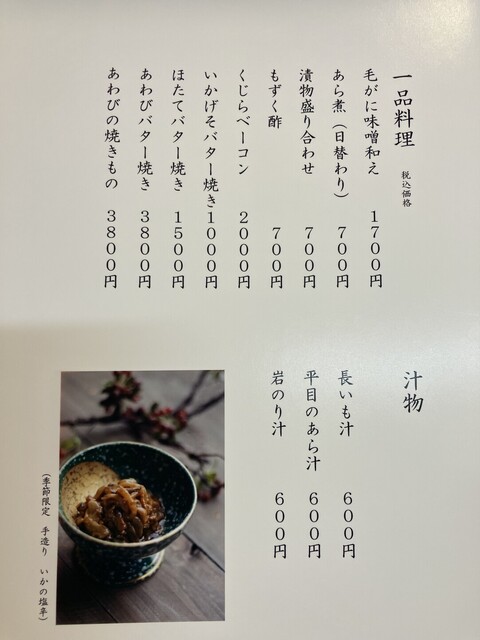 一品料理
税込価格
毛がに味噌和え 1700円
あら煮（日替わり） 700円
漬物盛り合わせ 700円
もずく酢 700円
くじらベーコン 2000円
いかげそバター焼き 1000円
ほたてバター焼き 1500円
あわびバター焼き 3800円
あわびの焼きもの 3800円
汁物
長いも汁 600円
平目のあら汁 600円
岩のり汁 600円
（季節限定 手造り いかの塩辛）